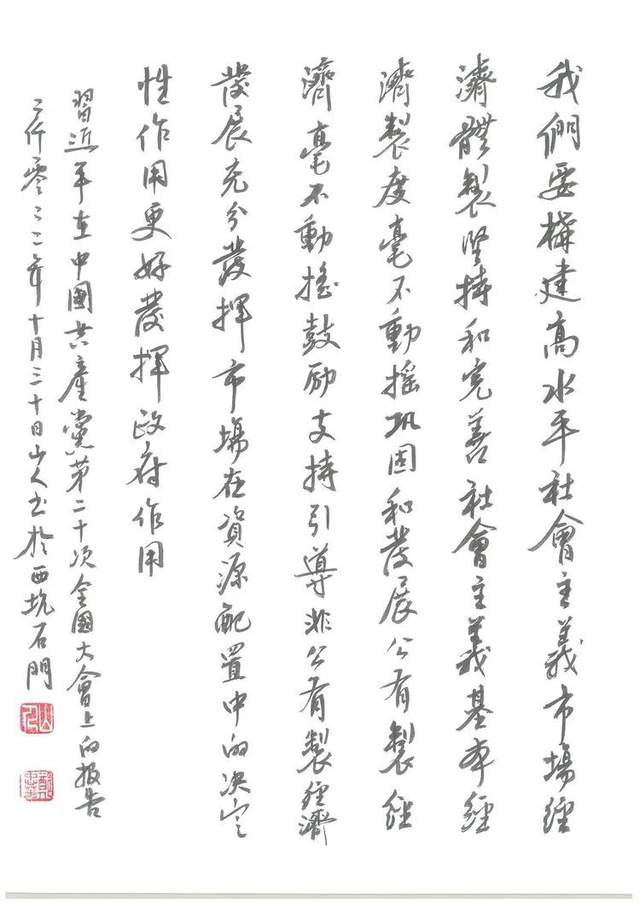 我們要構建高水平社會主義市場經
濟體製堅持和完善社會主義基本經
濟製度毫不動搖巩固和發展公有製經
濟毫不動搖鼓励支持引導非公有製經濟
發展充分發揮市場在資源配置中的决定
性作用更好發揮政府作用
習近平在中國共産黨第二十次全國大會上的报告
二仟零二二年十月三十日山人书於西坑石門